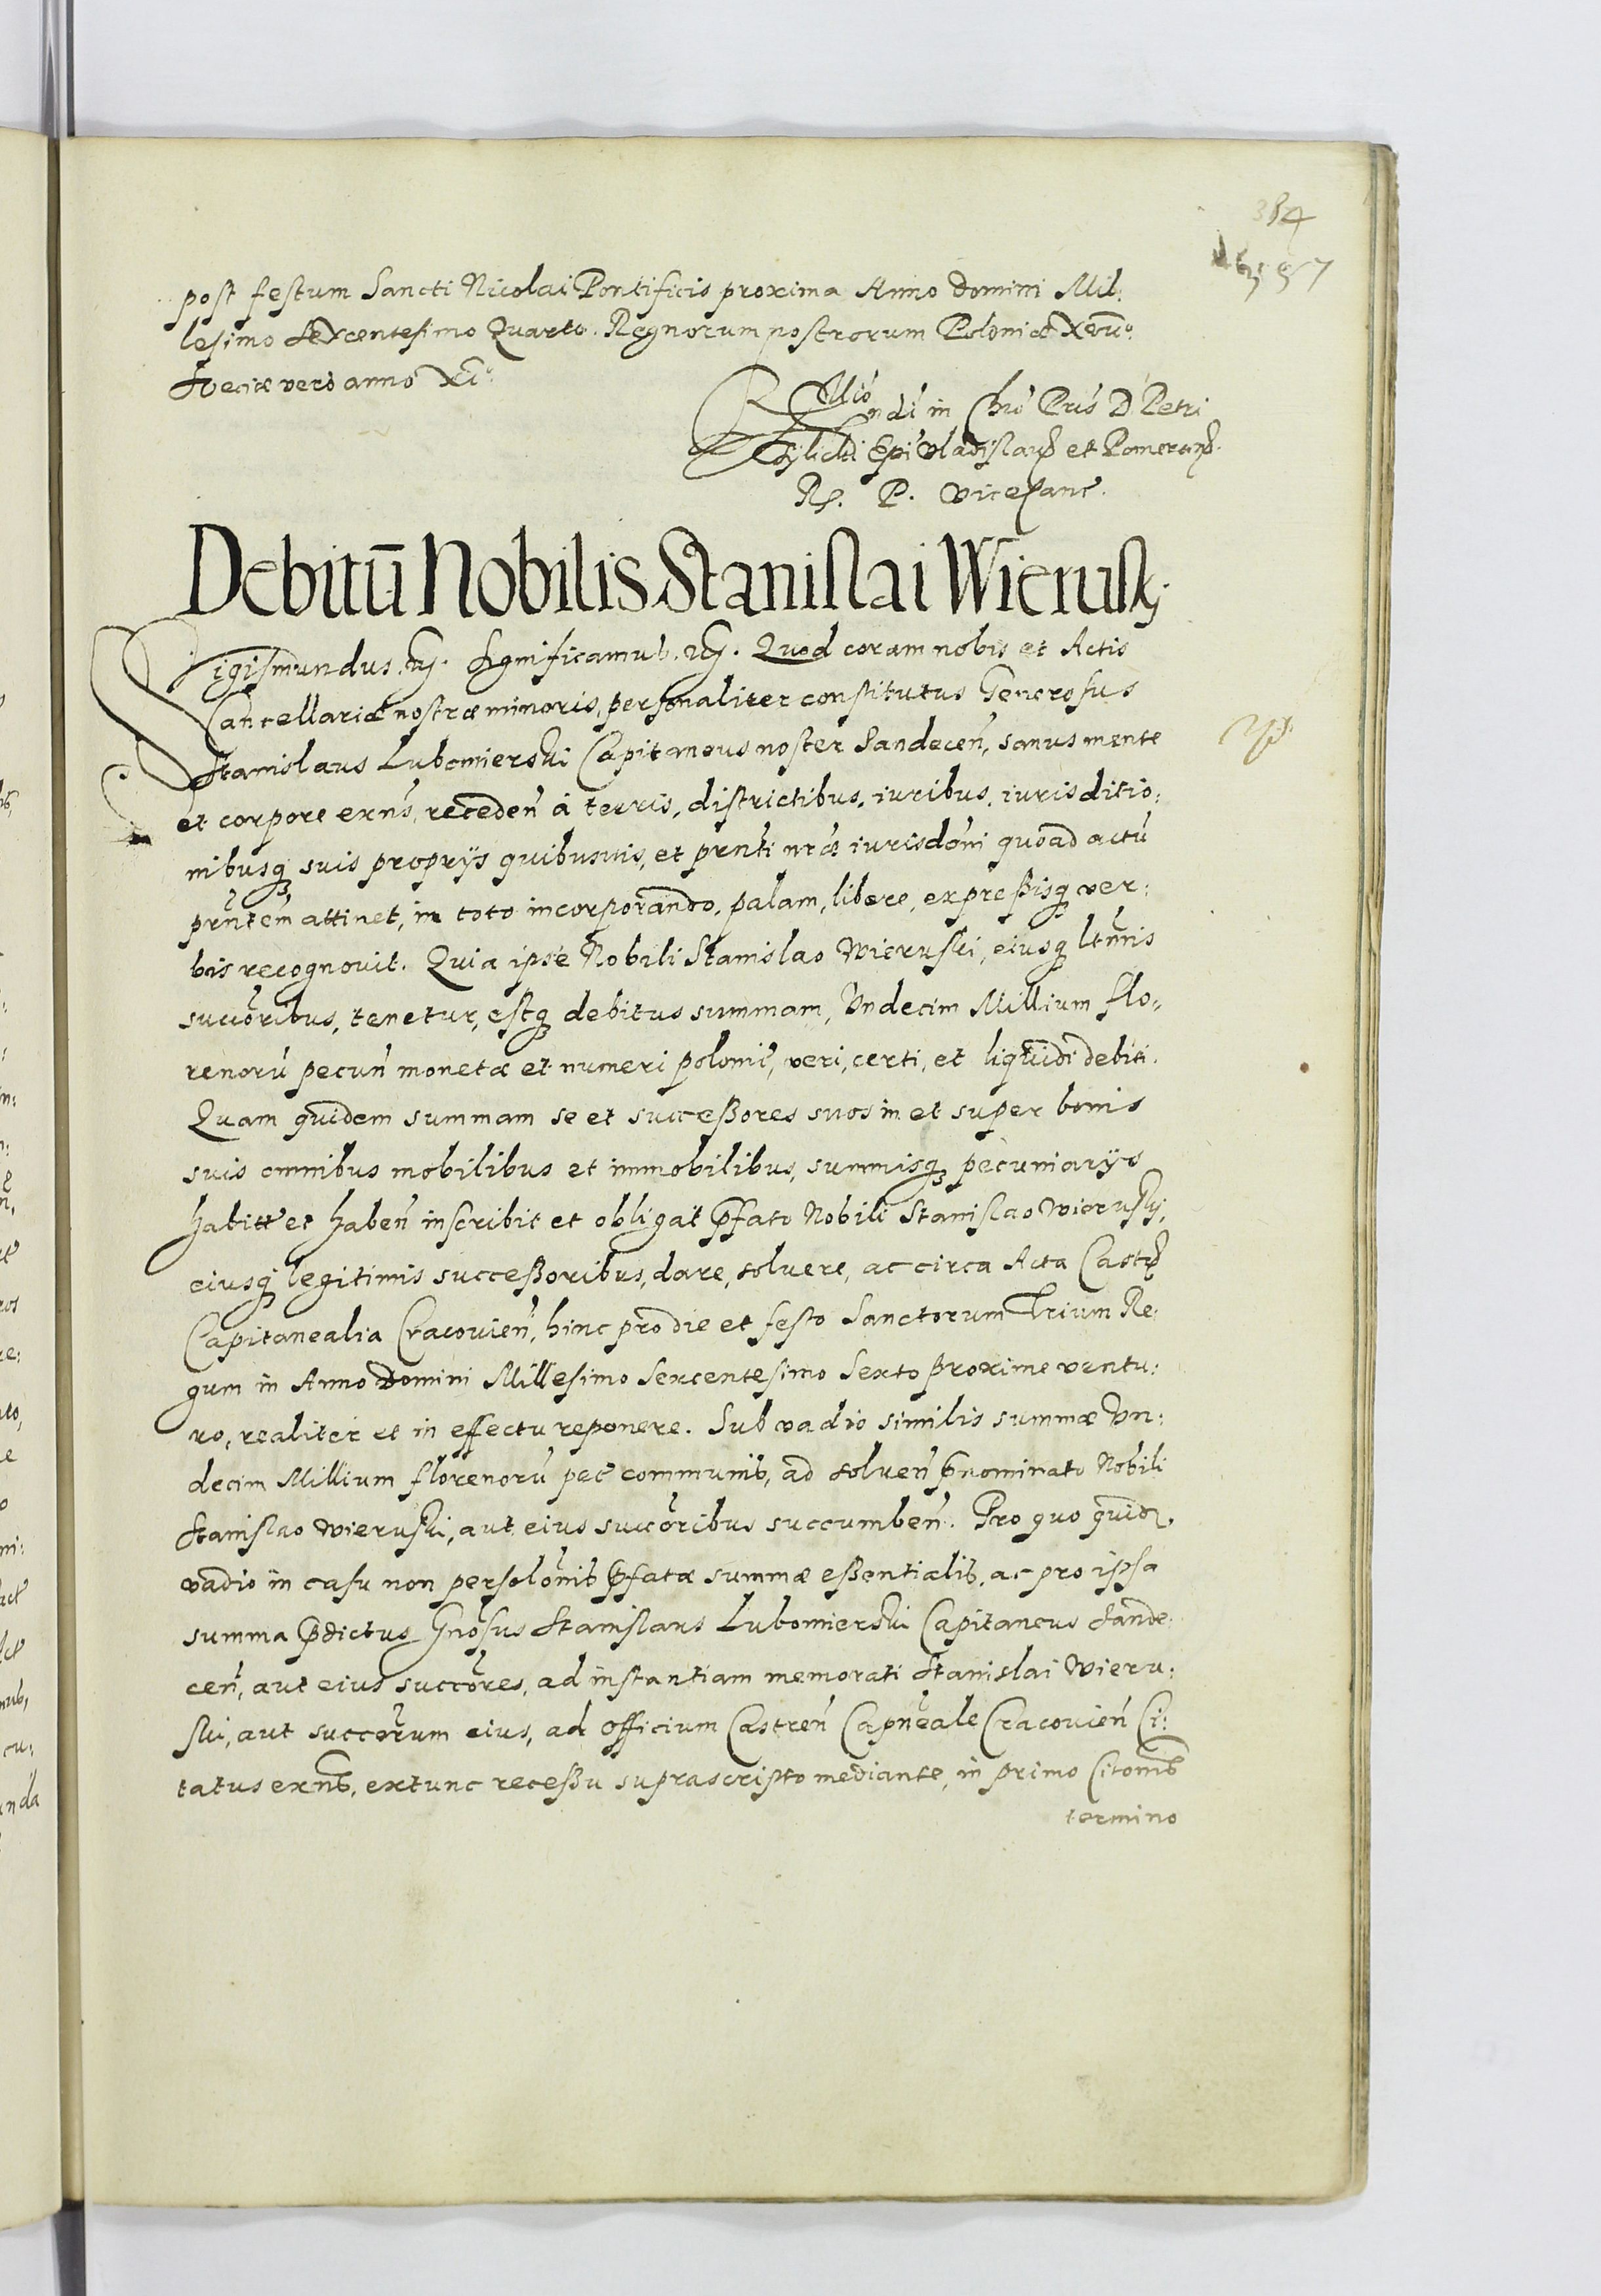 384
post festum Sancti Nicolai Pontificis proxima Anno Domini Mil:
lesimo Sexcentesimo Quarto. Regnorum nostrorum Poloniæ XVIIo.
Sveciæ vero anno XIo.
Rllio
ndi in Chro Pris D Petri
Tylicki Epi Vladislaụ et Pomeraniẹ.
R. P. Vicecanc.
Debitū Nobilis Stanislai Wierusky
Sigismundus etc. Significamus etc. Quod coram nobis et Actis
Cancellariæ nostræ minoris, personaliter constitutus Generosus
Stanislaus Lubomierski Capitaneus noster Sandecen, sanus mente
et corpore exns, receden à terris, districtibus, iuribus, iurisditio:
nibusq suis proprijs quibusuis, et prnti nræ iurisdoni quoad actū
prntem attinet, in toto incorporando, palam, libere, expreßisq ver:
bis recognovit. Quia ipse Nobili Stanislao Wieruski, eiusq ltmis
succoribus, tenetur, estq debitus summam, Undecim Millium flo:
renorū pecun monetæ et numeri polonic, veri, certi, et liquidi debiti.
Quam quidem summam se et succeßores suos in et super bonis
suis omnibus mobilibus et immobilibus, summisq pecuniarijs
habitt et haben inscribit et obligat pfato Nobili Stanislao Wierusky,
eiusq legitimis succeßoribus, dare, solvere, ac circa Acta Castr
Capitanealia Cracovien, hinc pro die et festo Sanctorum Trium Re:
gum in Anno Domini Millesimo Sexcentesimo Sexto proxime ventu:
ro, realiter et in effectu reponere. Sub vadio similis summæ Un:
decim Millium florenorū pec communis, ad solven pnominato Nobili
Stanislao Wieruski, aut eius succoribus succumben. Pro quo quid.
vadio in casu non persolonis pfatæ summæ eßentialis, ac pro ipsa
summa pdictus Gnosus Stanislaus Lubomierski Capitaneus Sande:
cen, aut eius succores, ad instantiam memorati Stanislai Wieru:
ski, aut succorum eius, ad officium Castren Capneale Cracovien Ci:
tatus exns, extunc receßu suprascripto mediante, in primo Citonis
termino